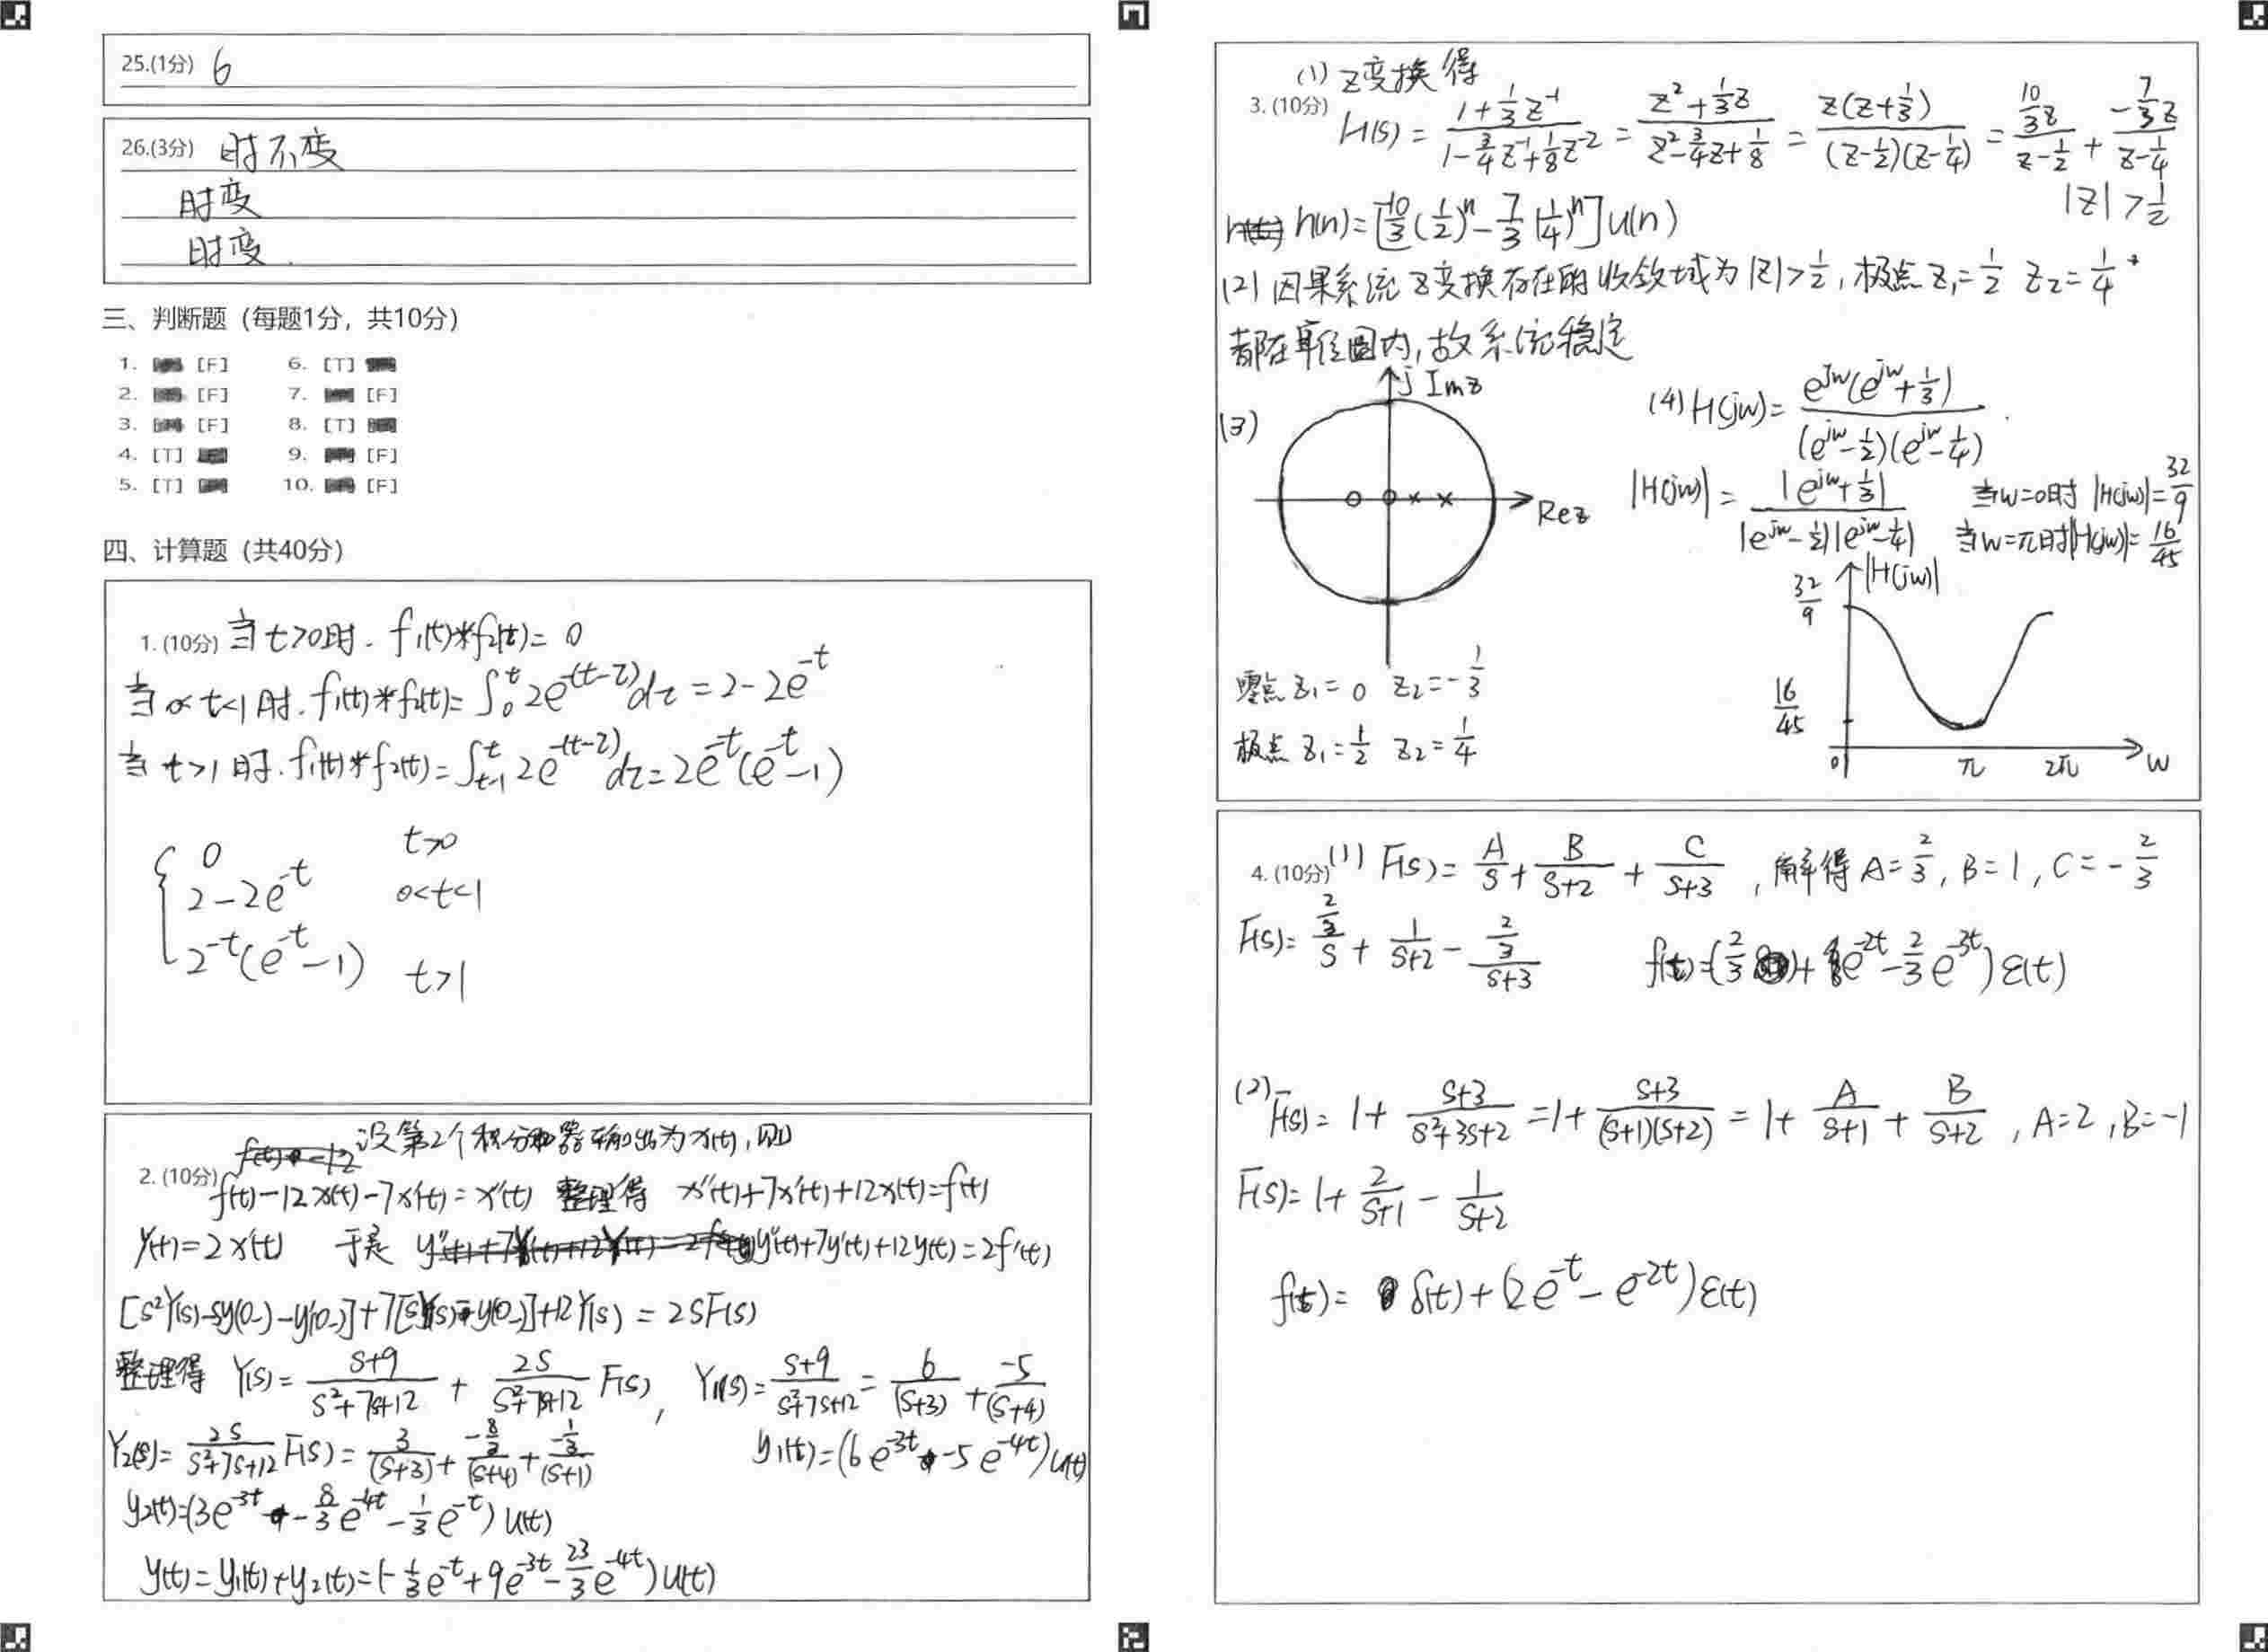 25.(1分) 6
26.(3分) 时不变
时变
时变.
三、判断题（每题1分，共10分）
1. [F] 6. [T]
2. [F] 7. [F]
3. [F] 8. [T]
4. [T] 9. [F]
5. [T] 10. [F]
四、计算题（共40分）
1. (10分) 当t>0时. f₁(t)*f₂(t)= 0
当0<t<1时. f₁(t)*f₂(t)= ∫₀ᵗ 2e^{-(t-τ)}dτ = 2-2e^{-t}
当t>1时. f₁(t)*f₂(t)= ∫_{t-1}^{t} 2e^{-(t-τ)}dτ = 2e^{-t}(e^{-t}-1)
{ 0 t>0
2-2e^{-t} 0<t<1
2^{-t}(e^{-t}-1) t>1
设第2个积分器输出为x(t), 则
2. (10分) f(t)-12x(t)-7x'(t)= x''(t) 整理得 x''(t)+7x'(t)+12x(t)=f(t)
y(t)=2x'(t) 于是 y''(t)+7y'(t)+12y(t)=2f'(t)
[s²Y(s)-sy(0₋)-y'(0₋)]+7[sY(s)-y(0₋)]+12Y(s) = 2sF(s)
整理得 Y(s)= (s+9)/(s²+7s+12) + 2s/(s²+7s+12) F(s), Y₁(s)= (s+9)/(s²+7s+12) = 6/(s+3) + -5/(s+4)
Y₂(s)= 2s/(s²+7s+12) F(s)= 3/(s+3) + (-8/3)/(s+4) + (-1/3)/(s+1) y₁(t)=(6e^{-3t}-5e^{-4t})u(t)
y₂(t)=(3e^{-3t} - 8/3 e^{-4t} - 1/3 e^{-t}) u(t)
y(t)=y₁(t)+y₂(t)=(-1/3 e^{-t}+9e^{-3t}-23/3 e^{-4t})u(t)
(1) Z变换得
3. (10分) H(s) = (1+1/3 z^{-1})/(1-3/4 z^{-1}+1/8 z^{-2}) = (z²+1/3 z)/(z²-3/4 z+1/8) = z(z+1/3)/((z-1/2)(z-1/4)) = (10/3 z)/(z-1/2) + (-7/3 z)/(z-1/4)
|z|>1/2
h(n)=[10/3 (1/2)ⁿ - 7/3 (1/4)ⁿ]u(n)
(2) 因果系统 z变换存在的收敛域为 |z|>1/2, 极点 z₁=1/2 z₂=1/4
都在单位圆内, 故系统稳定
(3)
jImz
Rez
零点 z₁=0 z₂=-1/3
极点 z₁=1/2 z₂=1/4
(4) H(jw)= e^{jw}(e^{jw}+1/3)/((e^{jw}-1/2)(e^{jw}-1/4))
|H(jw)| = |e^{jw}+1/3|/(|e^{jw}-1/2||e^{jw}-1/4|) 当w=0时 |H(jw)|=32/9
当w=π时|H(jw)|=16/45
|H(jw)|
32/9
16/45
0 π 2π w
4. (10分) (1) F(s)= A/s + B/(s+2) + C/(s+3), 解得 A=2/3, B=1, C=-2/3
F(s)= (2/3)/s + 1/(s+2) - (2/3)/(s+3) f(t)=(2/3 + e^{-2t}-2/3 e^{-3t})ε(t)
(2) F(s)= 1+ (s+3)/(s²+3s+2) =1+ (s+3)/((s+1)(s+2)) = 1+ A/(s+1) + B/(s+2), A=2, B=-1
F(s)= 1+ 2/(s+1) - 1/(s+2)
f(t)= δ(t)+(2e^{-t}-e^{-2t})ε(t)